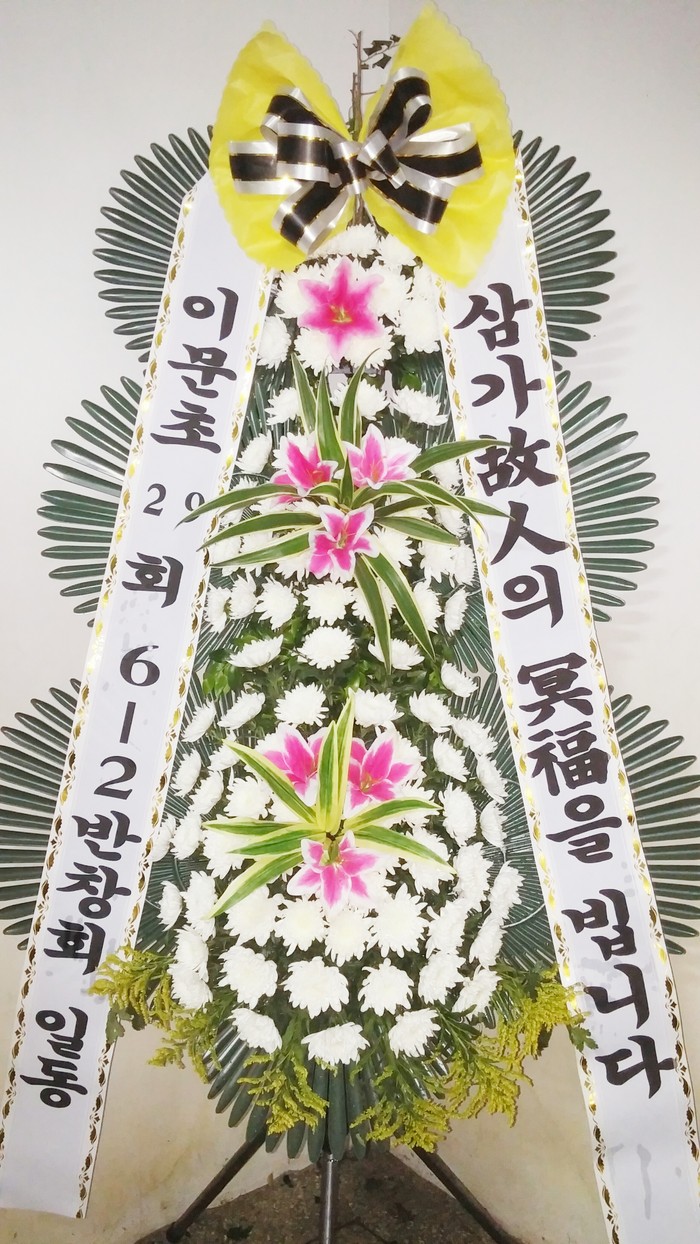 이문초 29회 6-2반창회 일동
삼가 故人의 冥福을 빕니다